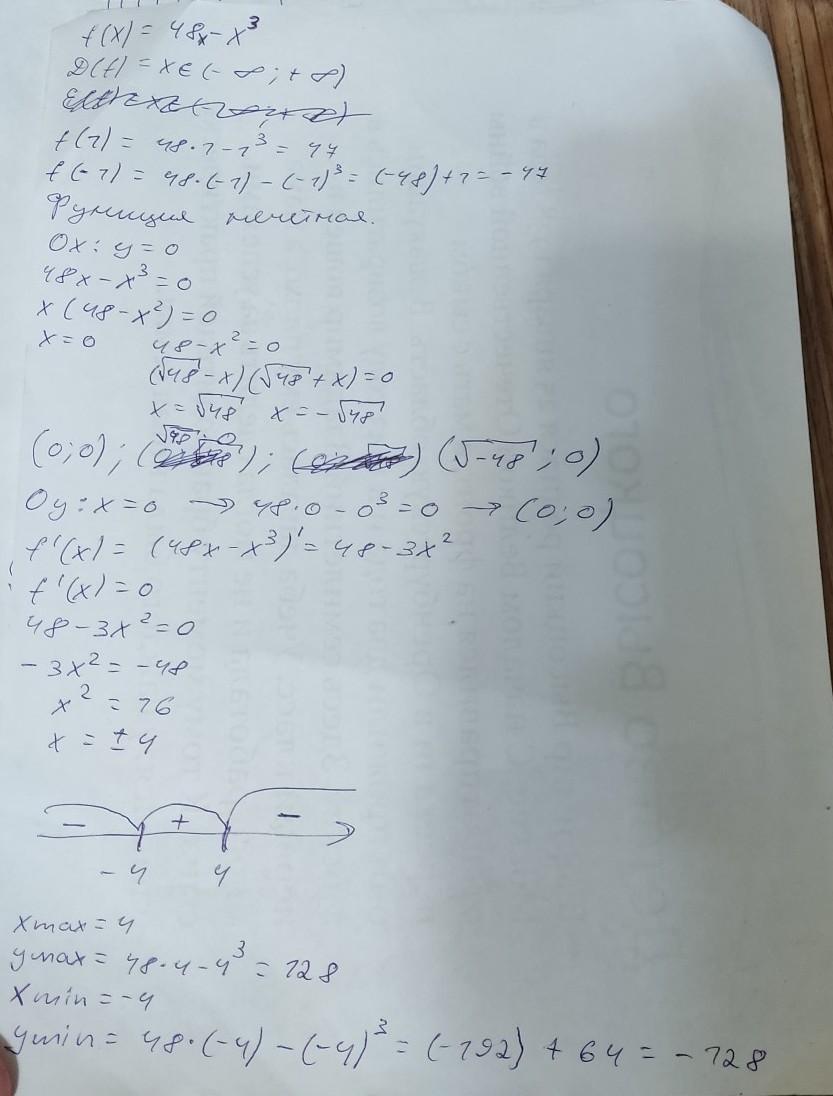 f(x) = 48x - x³
D(f) = x ∈ (-∞; +∞)
f(1) = 48·1 - 1³ = 47
f(-1) = 48·(-1) - (-1)³ = (-48) + 1 = -47
Функция нечётная.
Ox: y = 0
48x - x³ = 0
x(48 - x²) = 0
x = 0 48 - x² = 0
(√48 - x)(√48 + x) = 0
x = √48 x = -√48
(0;0); (√48; 0); (√-48; 0)
Oy: x = 0 → 48·0 - 0³ = 0 → (0;0)
f'(x) = (48x - x³)' = 48 - 3x²
f'(x) = 0
48 - 3x² = 0
-3x² = -48
x² = 16
x = ±4
- + -
-4 4
xmax = 4
ymax = 48·4 - 4³ = 128
xmin = -4
ymin = 48·(-4) - (-4)³ = (-192) + 64 = -128